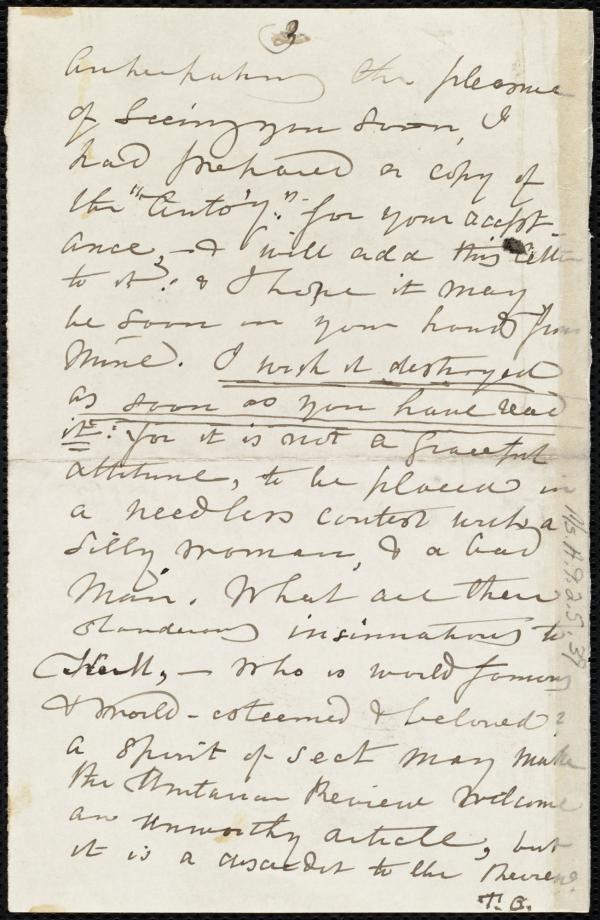 3
Anticipating the pleasure
of seeing you soon, I
had prepared a copy of
the "Auto'y." for your accept-
ance, - I will add this letter
to it: & I hope it may
be soon in your hands from
mine. I wish it destroyed
as soon as you have read
it: for it is not a graceful
attitude, to be placed in
a needless contest with a
silly woman, & a bad
man. What are their
slanderous insinuations to
- who is world famous
& world-esteemed & beloved?
a spirit of sect may make
the Unitarian Review welcome
an unworthy article, but
it is a discredit to the Review.
Ms. A.9.2.5.39